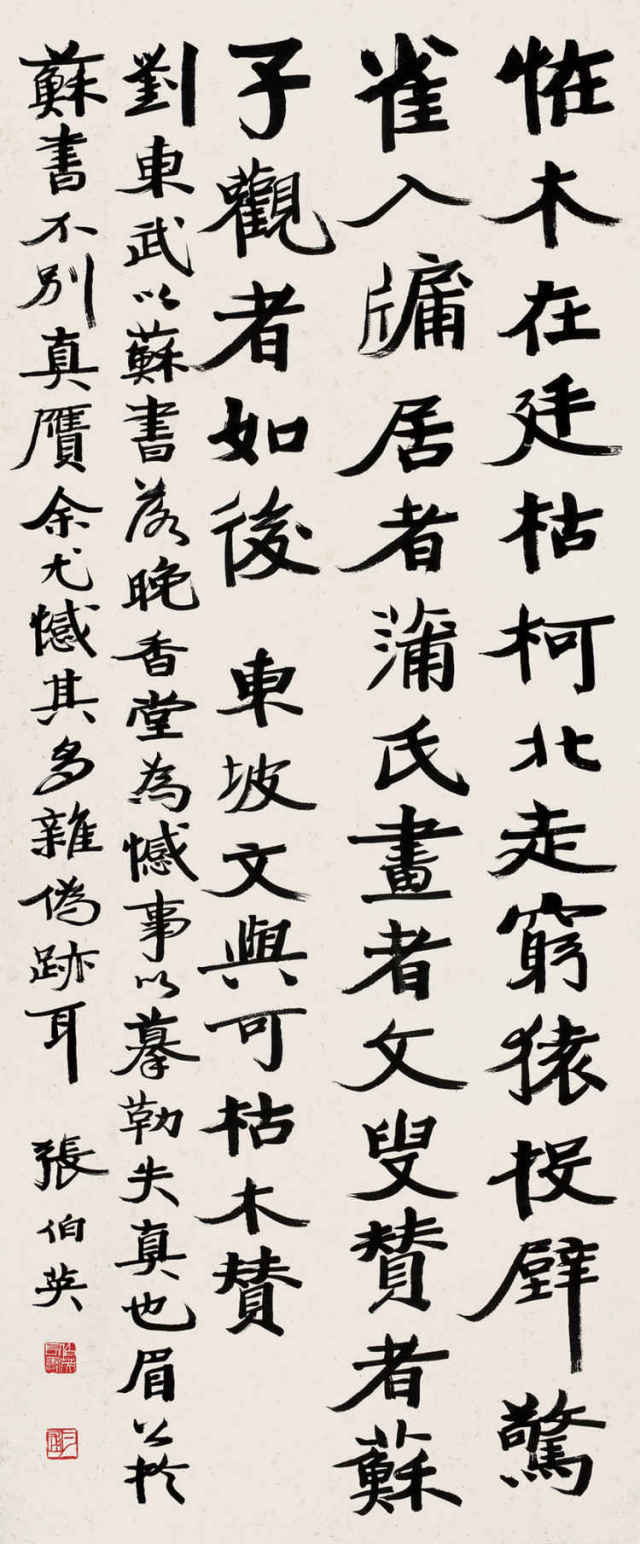 怪木在廷枯柯北走窮猿投壁驚
雀入牖居者蒲氏畫者文叟贊者蘇
子觀者如後 東坡文與可枯木贊
劉東武以蘇書落晚香堂為憾事以摹勒失真也眉公於
蘇書不別真贗余尤憾其多雜偽跡耳 張伯英